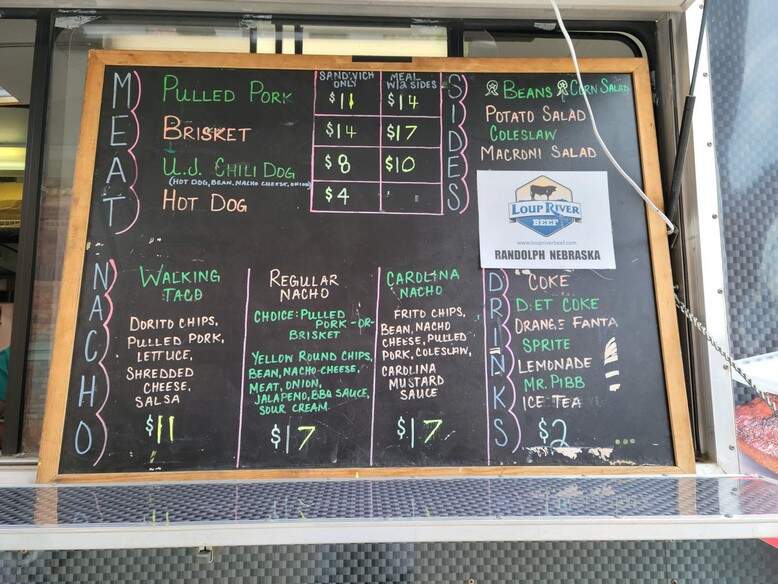 MEAT
SANDWICH ONLY
MEAL W/2 SIDES
PULLED PORK $11 $14
BRISKET $14 $17
U.J. CHILI DOG $8 $10
(HOT DOG, BEAN, NACHO CHEESE, ONION)
HOT DOG $4
SIDES
BEANS CORN SALAD
POTATO SALAD
COLESLAW
MACRONI SALAD
LOUP RIVER
BEEF
www.loupriverbeef.com
RANDOLPH NEBRASKA
NACHO
WALKING
TACO
DORITO CHIPS,
PULLED PORK,
LETTUCE,
SHREDDED
CHEESE,
SALSA
$11
REGULAR
NACHO
CHOICE: PULLED
PORK -OR-
BRISKET
YELLOW ROUND CHIPS,
BEAN, NACHO CHEESE,
MEAT, ONION,
JALAPENO, BBQ SAUCE,
SOUR CREAM
$17
CAROLINA
NACHO
FRITO CHIPS,
BEAN, NACHO
CHEESE, PULLED
PORK, COLESLAW,
CAROLINA
MUSTARD
SAUCE
$17
DRINKS
COKE
DIET COKE
ORANGE FANTA
SPRITE
LEMONADE
MR. PIBB
ICE TEA
$2